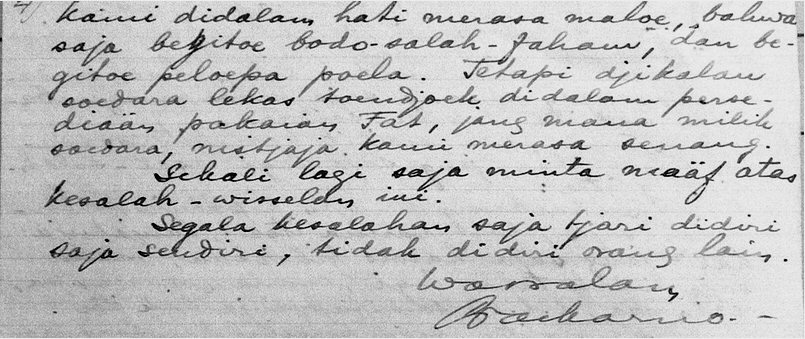 4)
kami didalam hati merasa maloe, bahwa
saja begitoe bodo-salah-faham, dan be-
gitoe peloepa poela. Tetapi djikalau
soedara lekas toendjoek didalam perse-
diaän pakaian Fat, jang mana milik
soedara, nistjaja kami merasa senang.
Sekali lagi saja minta maäf atas
kesalah-wisselan ini.
Segala kesalahan saja tjari didiri
saja sendiri, tidak didiri orang lain.
Wassalam
Soekarno.-